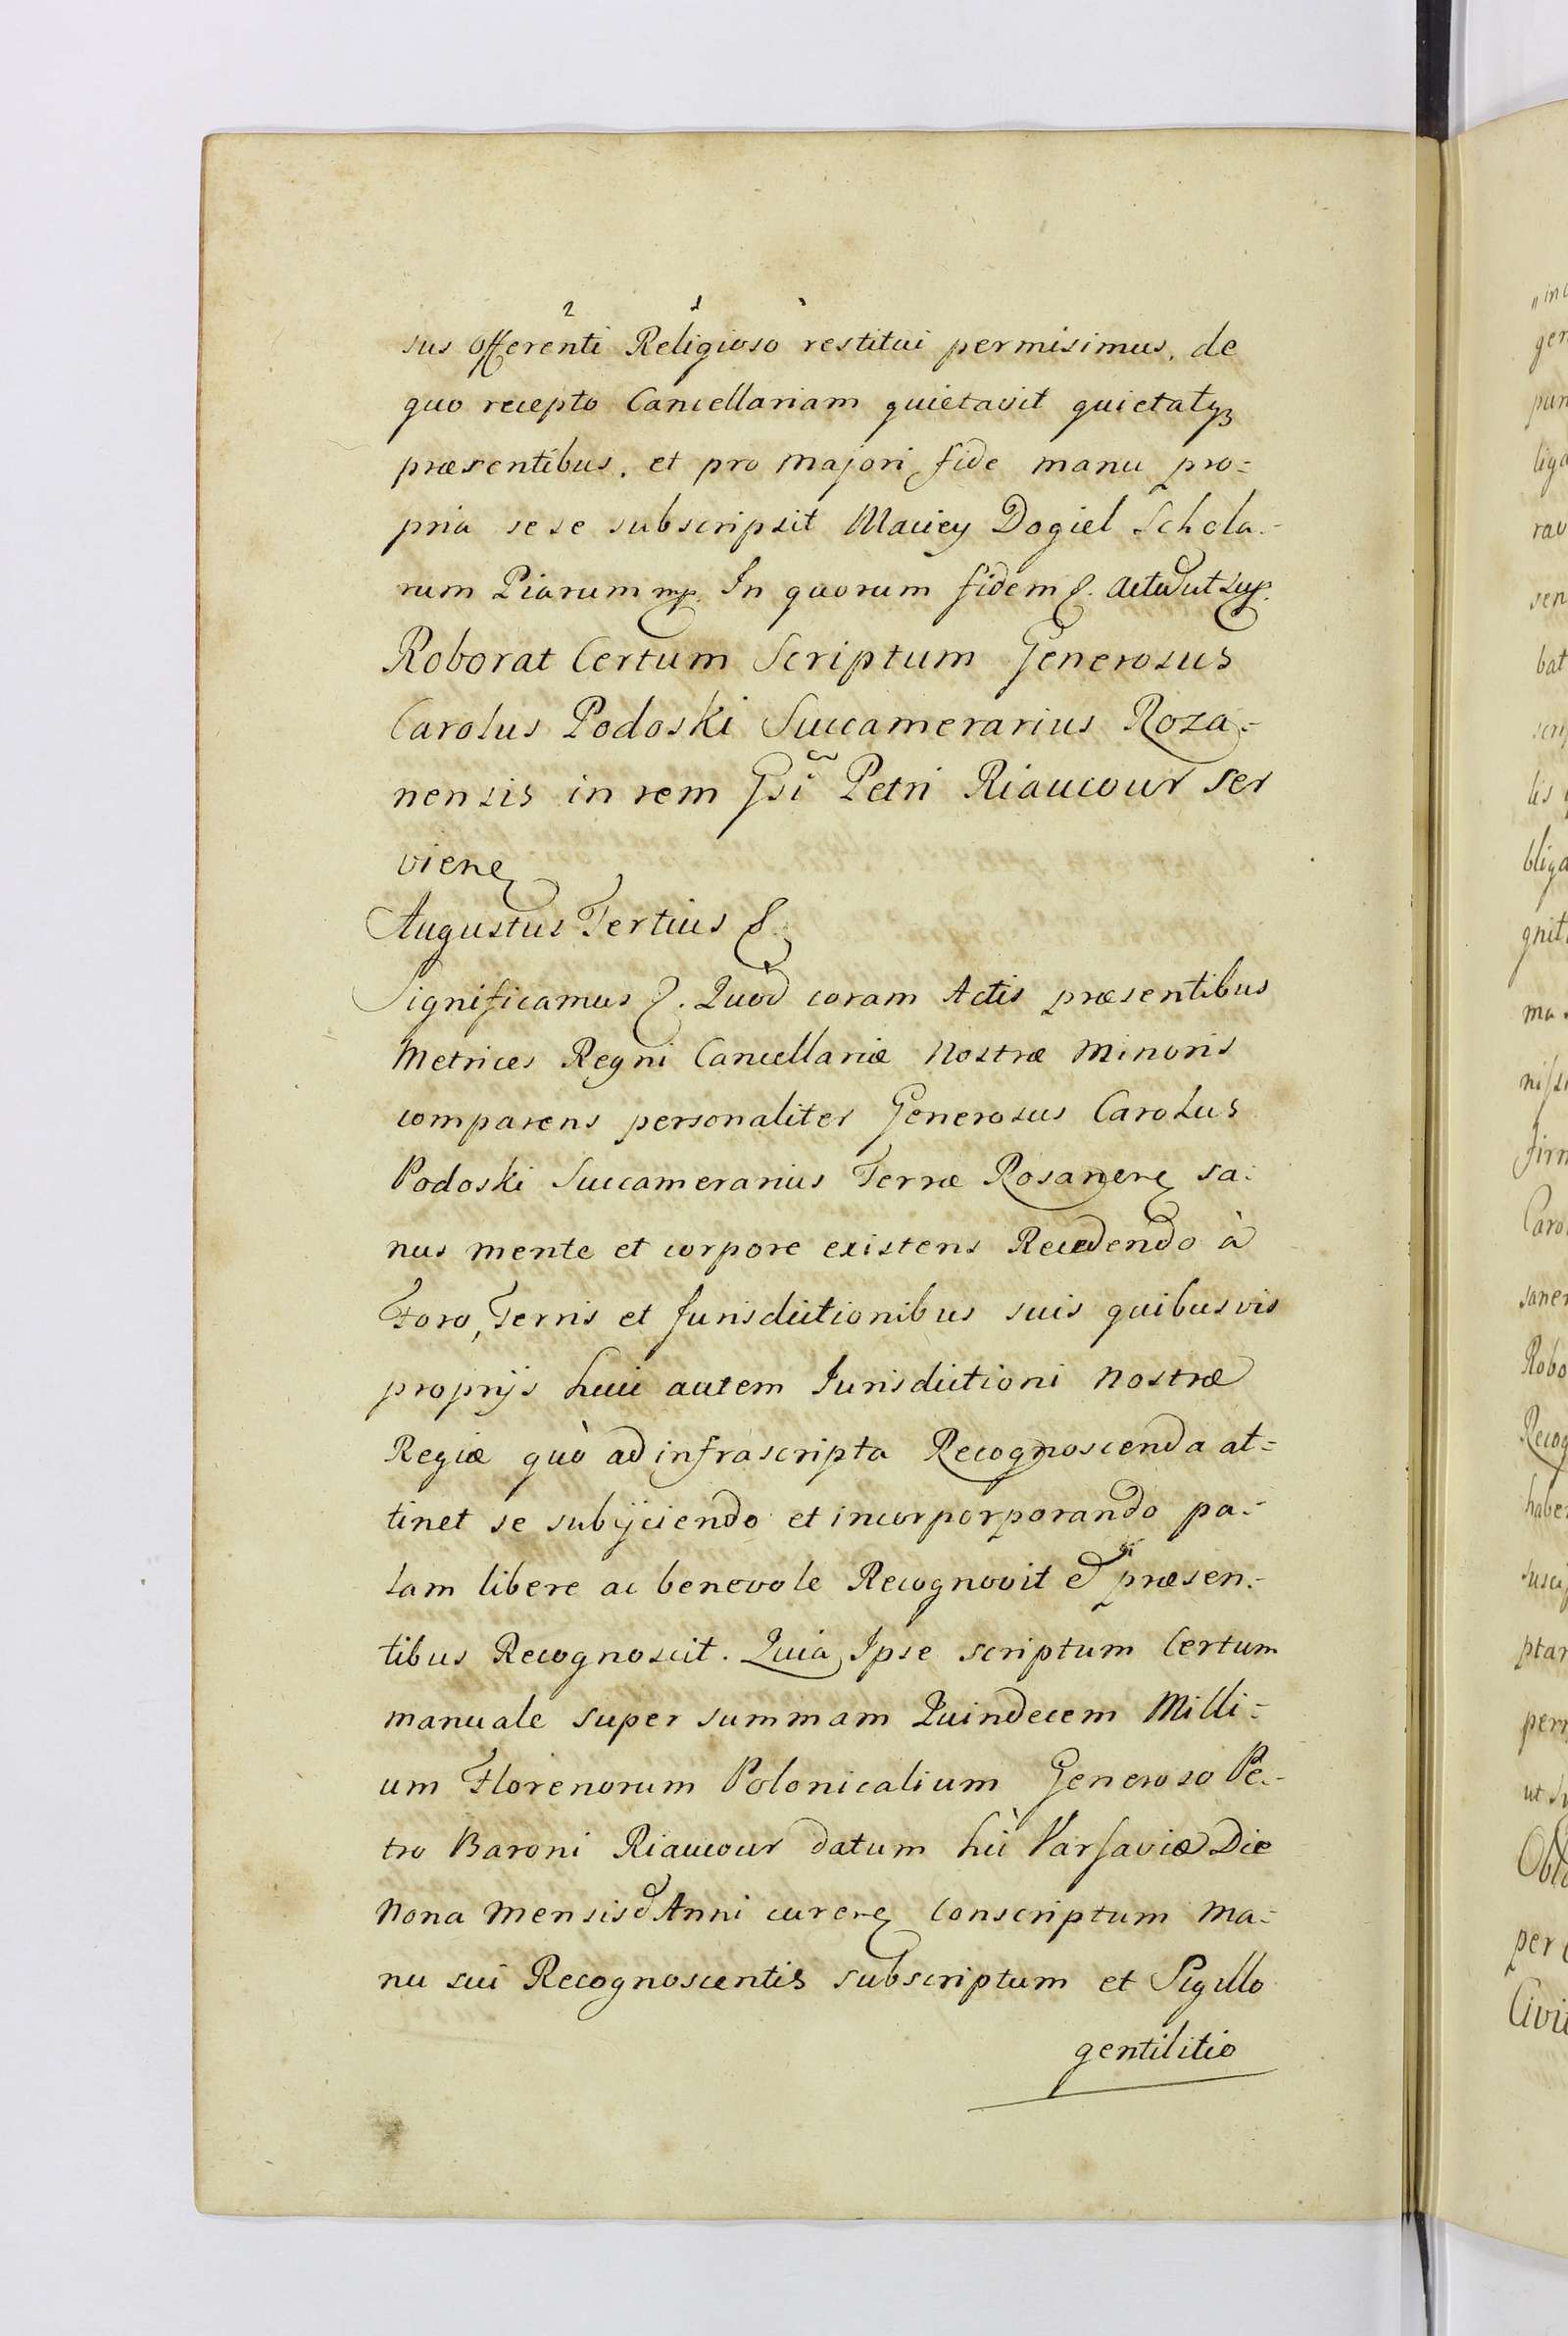 sus Offerenti Religioso restitui permisimus, de
quo recepto Cancellariam quietavit quietatqꝫ
præsentibus. et pro majori fide manu pro=
pria sese subscripsit Maciey Dogiel Schola=
rum Piarum mp. In quorum fidem &. Actũ ut sup.
Roborat Certum Scriptum Generosus
Carolus Podoski Succamerarius Roza=
nensis in rem Gsi Petri Riaucour ser
viene
Augustus Tertius &.
Significamus &. Quod coram Actis præsentibus
Metrices Regni Cancellariæ Nostræ Minoris
comparens personaliter Generosus Carolus
Podoski Succamerarius Terræ Rosanene sa=
nus mente et corpore existens Recedendo à
Foro, Terris et Jurisdictionibus suis quibusvis
proprijs huic autem Jurisdictioni Nostræ
Regiæ quò ad infrascripta Recognoscenda at=
tinet se subijciendo et incorporporando pa=
lam libere ac benevole Recognovit et præsen=
tibus Recognoscit. Quia Ipse scriptum Certum
manuale super summam Quindecem Milli=
um Florenorum Polonicalium Generoso Pe=
tro Baroni Riaucour datum hic Varsaviæ Die
Nona Mensis et Anni curene Conscriptum Ma=
nu sui Recognoscentis subscriptum et Sigillo
gentilitio